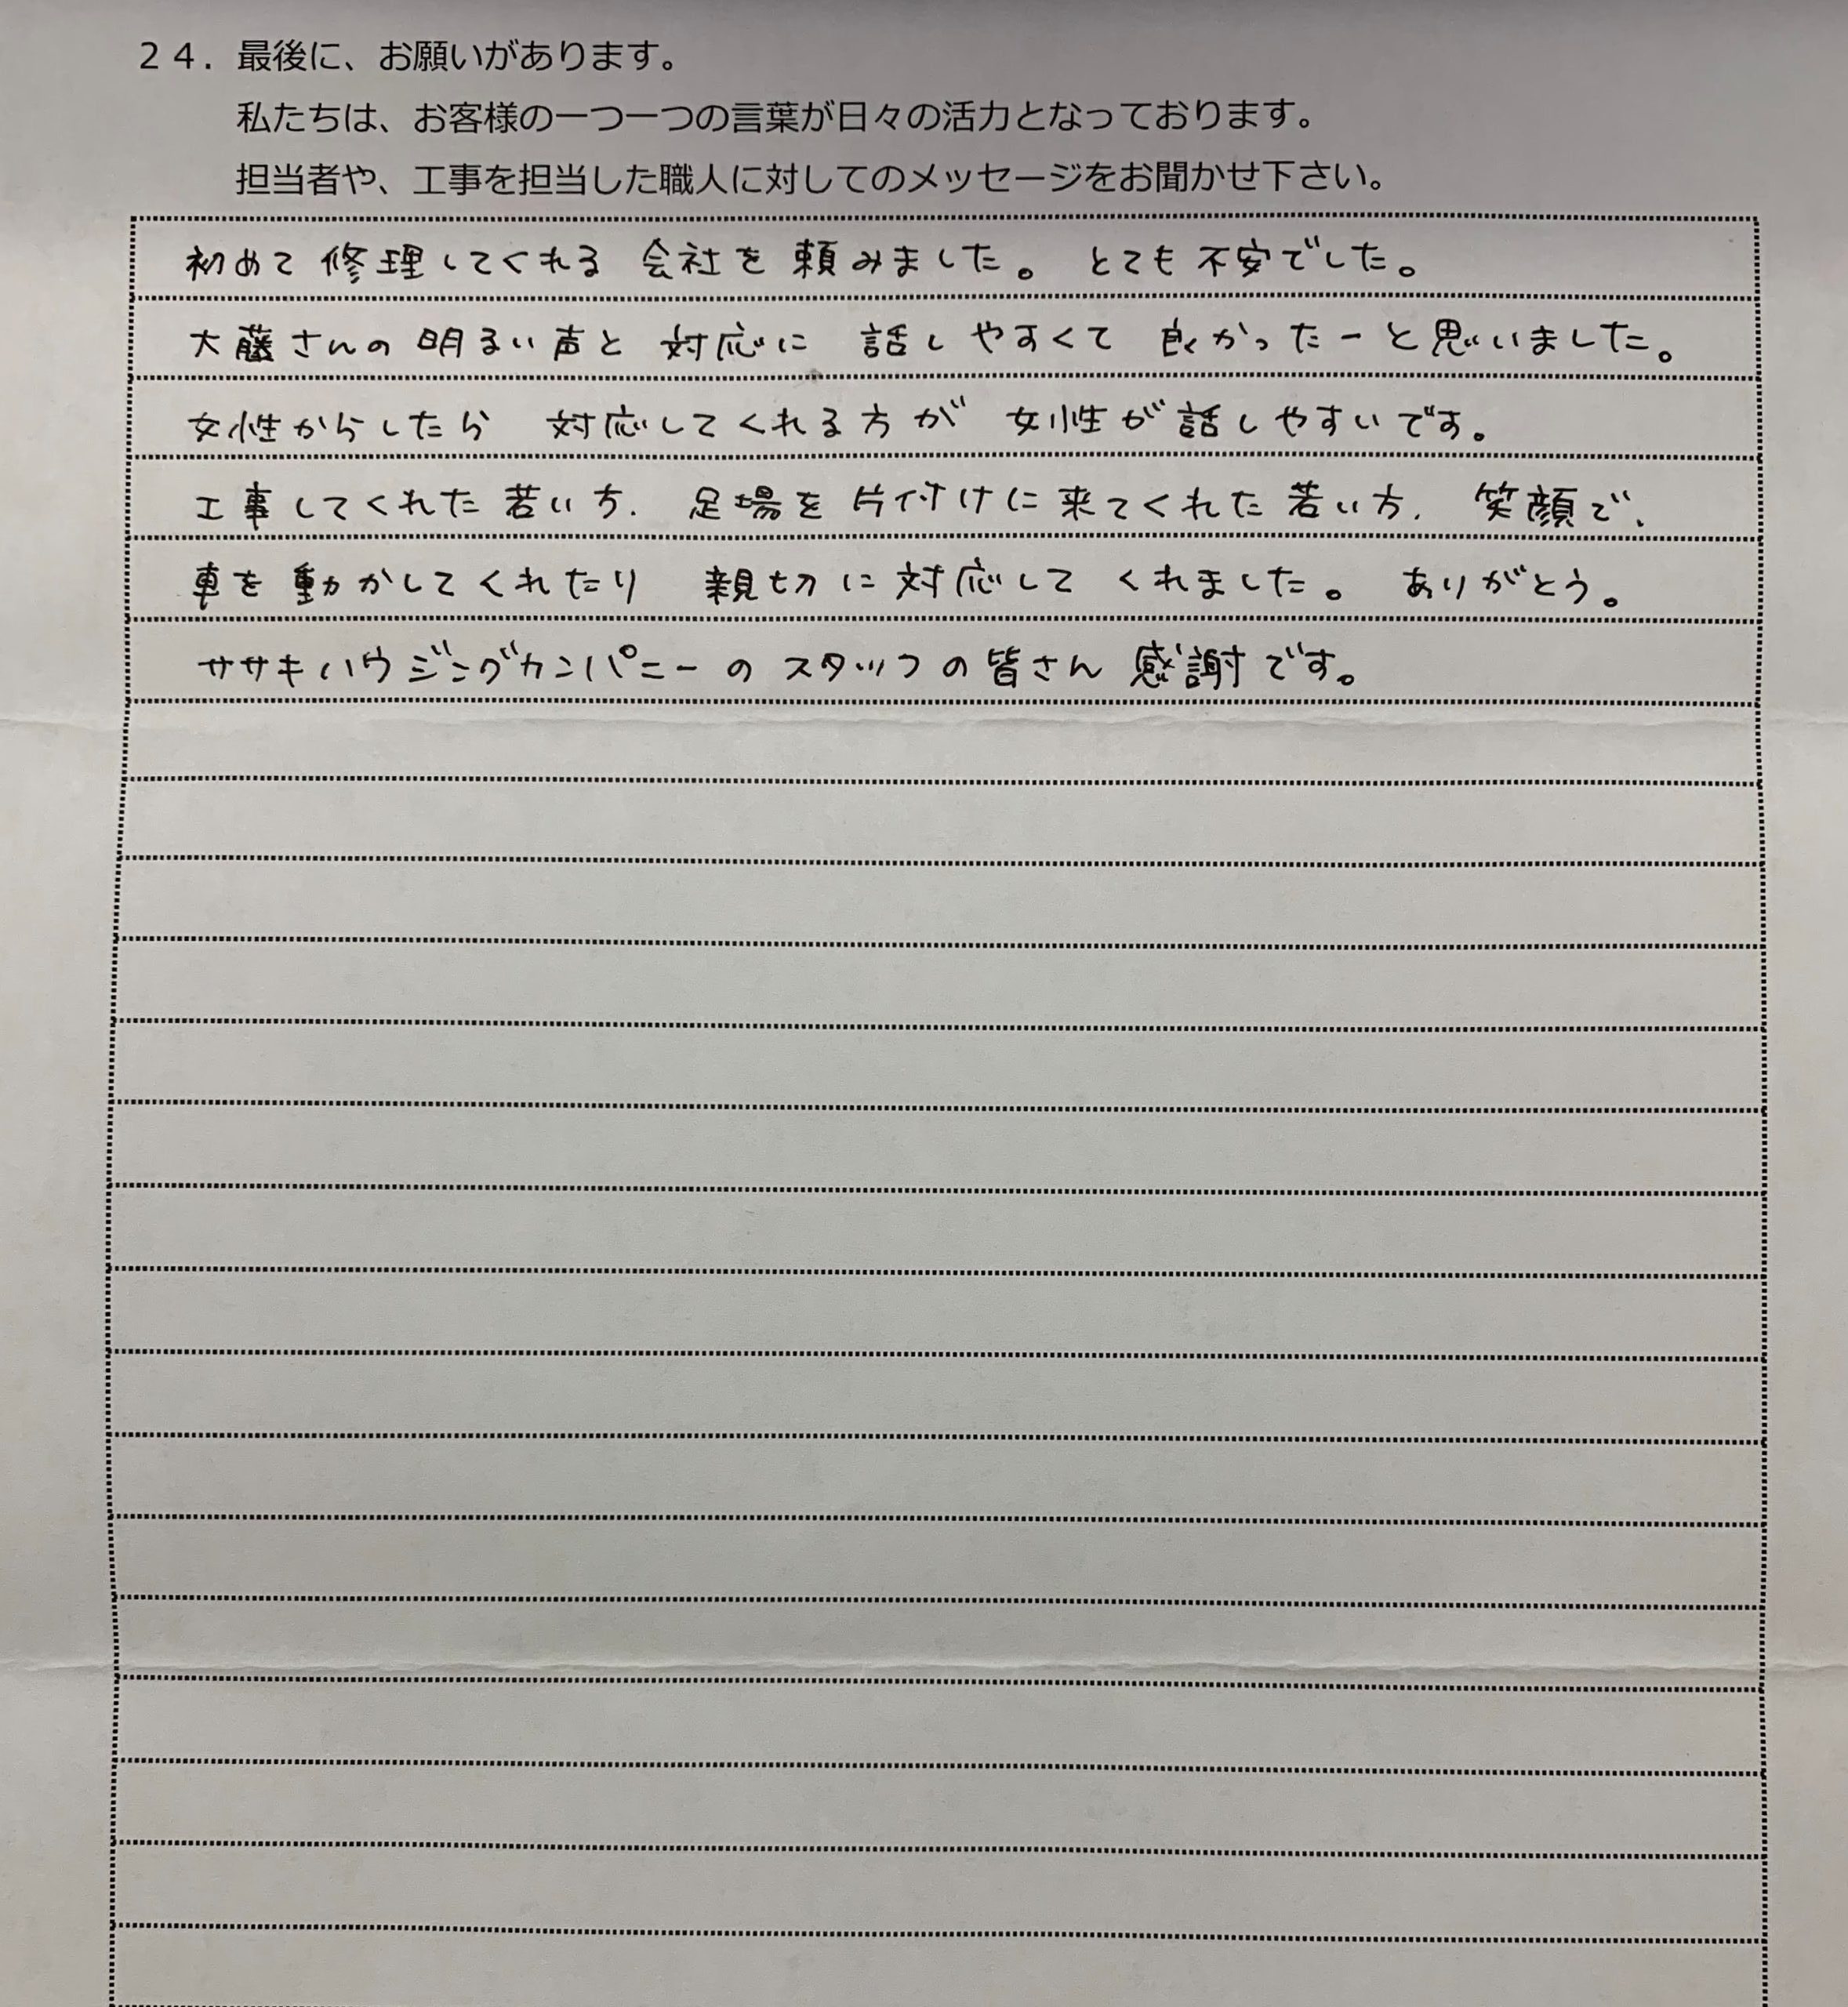 24. 最後に、お願いがあります。
私たちは、お客様の一つ一つの言葉が日々の活力となっております。
担当者や、工事を担当した職人に対してのメッセージをお聞かせ下さい。
初めて修理してくれる 会社を頼みました。 とても不安でした。
大藤さんの明るい声と 対応に 話しやすくて 良かったーと思いました。
女性からしたら 対応してくれる方が 女性が話しやすいです。
工事してくれた若い方、足場を片付けに来てくれた若い方、笑顔で、
車を動かしてくれたり 親切に対応して くれました。 ありがとう。
ササキハウジングカンパニーの スタッフの皆さん 感謝です。